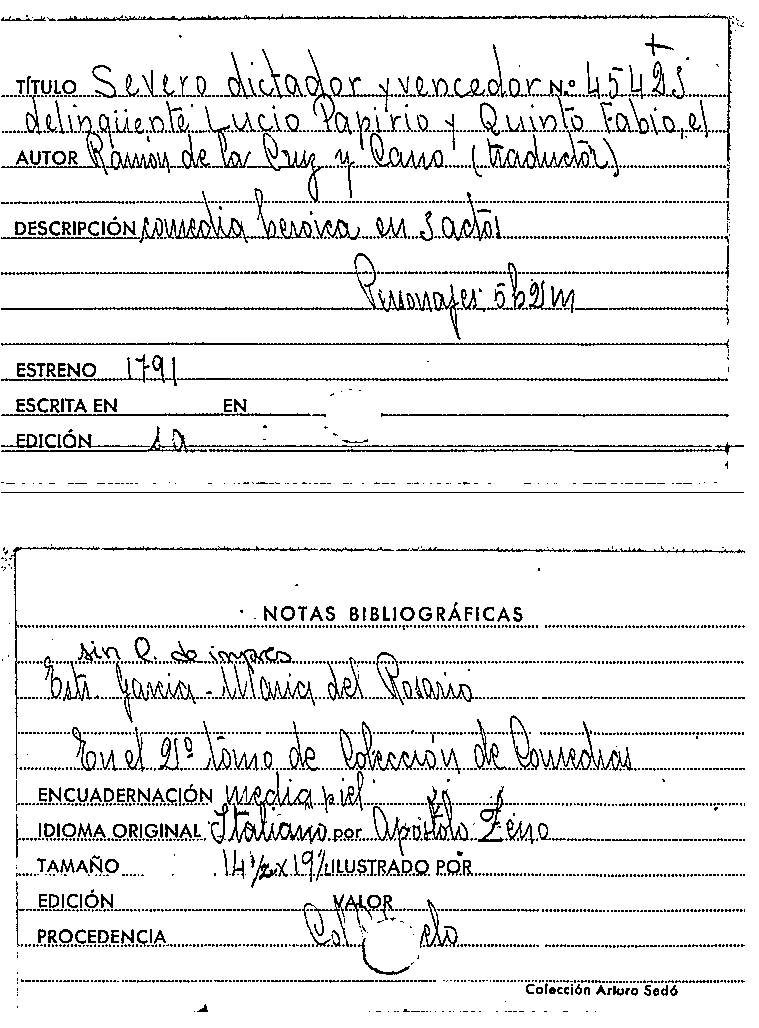 TÍTULO Severo dictador y vencedor Nº 45425
delinqüente Lucio Papirio y Quinto Fabio, el
AUTOR Ramón de la Cruz y Cano (traductor)
DESCRIPCIÓN comedia heroica en 3 actos
Personajes: 5h 2m
ESTRENO 1791
ESCRITA EN EN
EDICIÓN 1a
NOTAS BIBLIOGRÁFICAS
sin P. de impres
García - María del Rosario
En el 21º tomo de Colección de Comedias
ENCUADERNACIÓN media piel
IDIOMA ORIGINAL Italiano por Apóstolo Zeno
TAMAÑO 14½x19½ ILUSTRADO POR
EDICIÓN VALOR
PROCEDENCIA
Colección Arturo Sedó